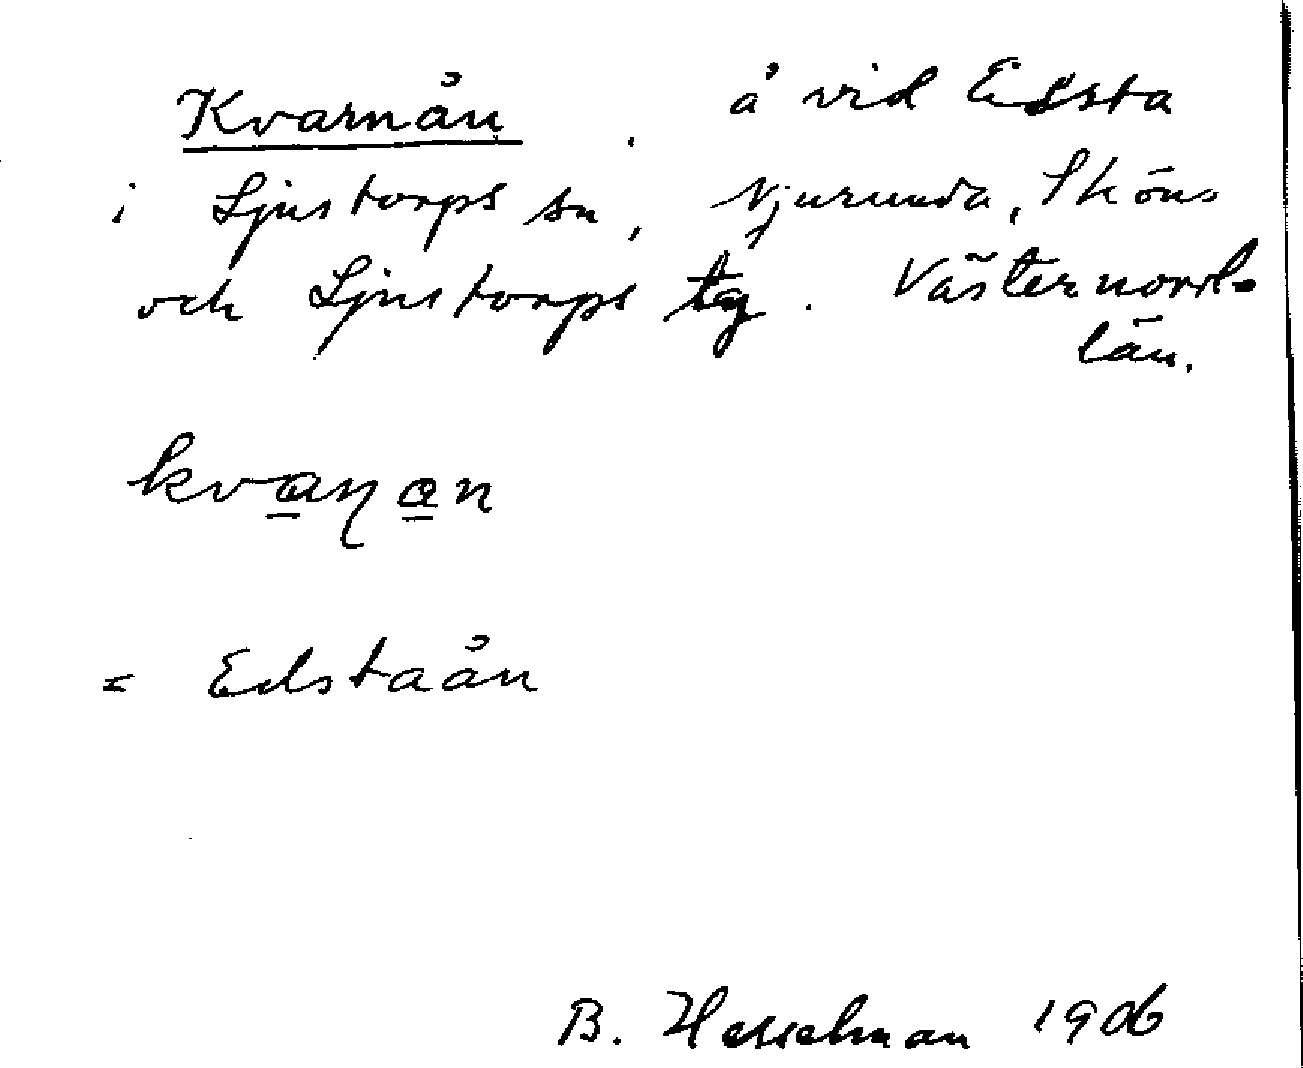 Kvarnån . å vid Edsta
i Ljustorps sn, Njurunda, Sköns
och Ljustorps tg. Västernorrl.
län.
kvaɳan
= Edstaån
B. Hesselman 1906